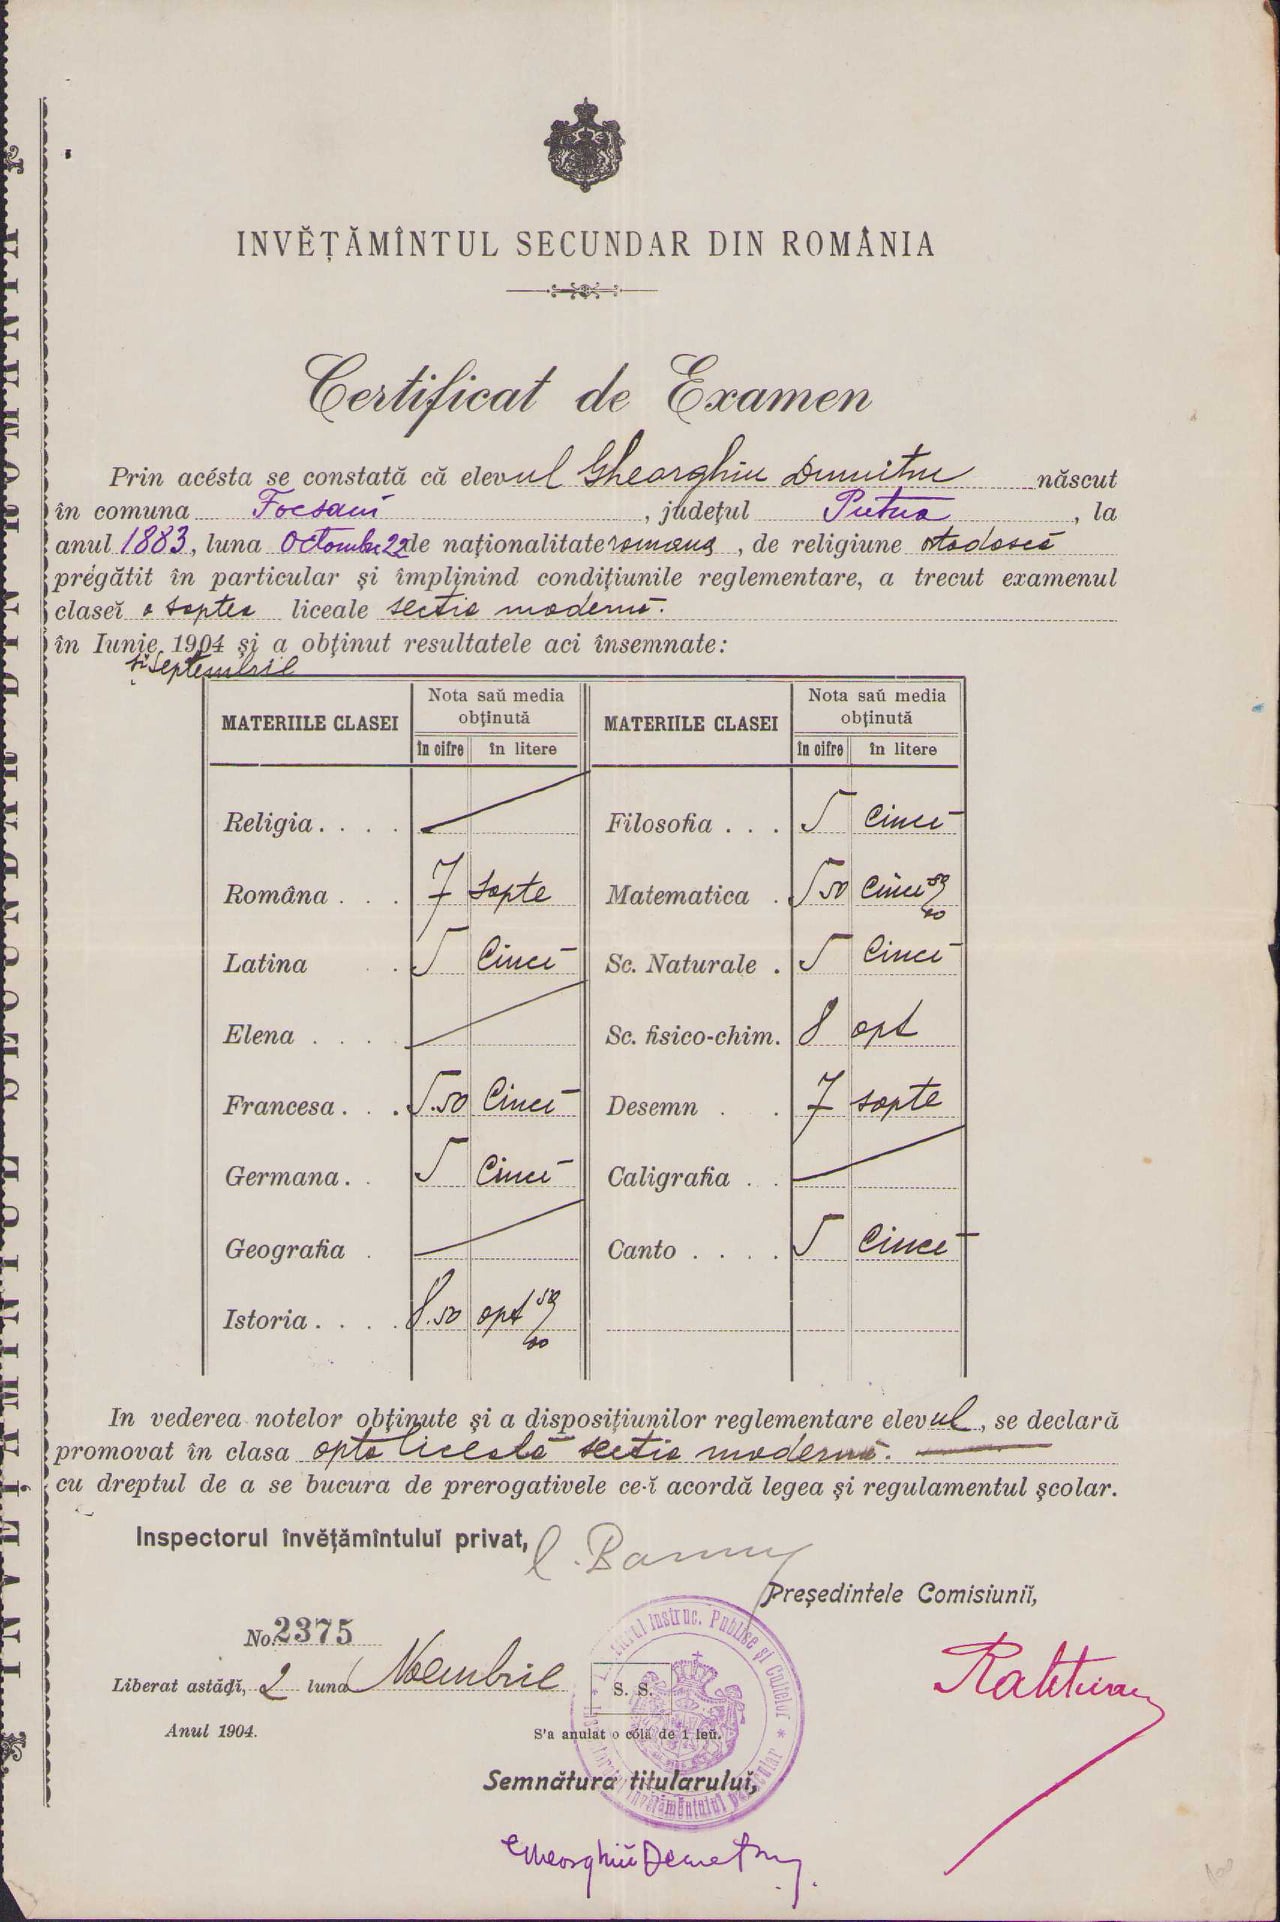 INVĔȚĂMÎNTUL SECUNDAR DIN ROMÂNIA
Certificat de Examen
Prin acésta se constată că elevul Gheorghiu Dumitru născut
în comuna Focsani, județul Putna, la
anul 1883, luna Octombr 22 de naționalitate romana, de religiune ortodoscă
pregătit în particular și împlinind condițiunile reglementare, a trecut examenul
claseĭ a saptea liceale sectia modernă.
în Iunie 1904 și a obținut resultatele aci însemnate:
si Septembrie
MATERIILE CLASEI Nota saŭ media obținută MATERIILE CLASEI Nota saŭ media obținută
în cifre în litere în cifre în litere
Religia . . . . Filosofia . . . 5 Cinci
Româna . . . 7 sapte Matematica . 5 50 Cinci 50
Latina . 5 Cinci Sc. Naturale . 5 Cinci
Elena . . . . Sc. fisico-chim. 8 opt
Francesa . . . 5.50 Cinci Desemn . . 7 sapte
Germana . . 5 Cinci Caligrafia . .
Geografia . Canto . . . . 5 Cinci
Istoria . . . . 8.50 opt 50
In vederea notelor obținute și a dispozițiunilor reglementare elevul, se declară
promovat în clasa opta liceală sectia modernă.
cu dreptul de a se bucura de prerogativele ce-ĭ acordă legea și regulamentul școlar.
Inspectorul învĕțămîntuluĭ privat,
Președintele Comisiuniĭ,
No. 2375
Liberat astăḑĭ, 2 luna Noembrie
S. S.
Anul 1904.
S'a anulat o cólă de 1 leŭ.
Semnătura titularuluĭ,
Gheorghiu Demetru